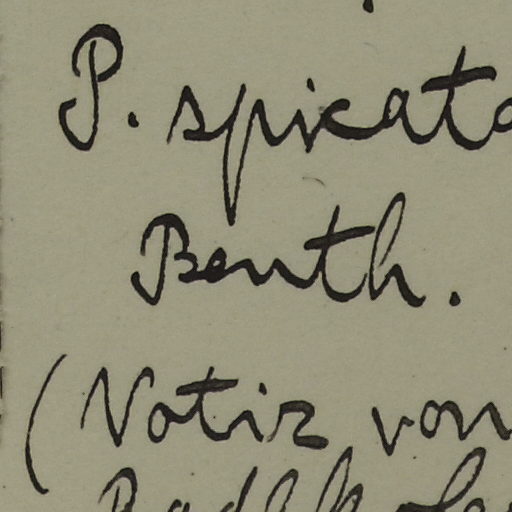 P. spicata
Benth.
(Notiz von